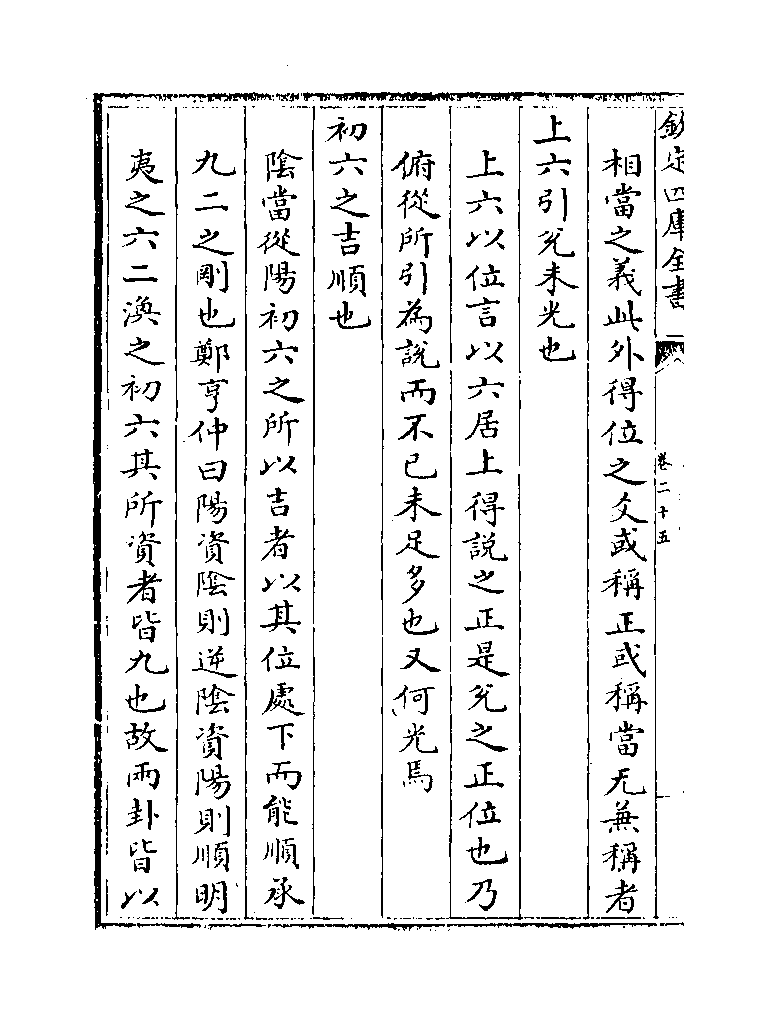 欽定四庫全書
卷二十五
相當之義此外得位之爻或稱正或稱當无兼稱者
上六引兌未光也
上六以位言以六居上得説之正是兌之正位也乃
俯從所引為説而不已未足多也又何光焉
初六之吉順也
陰當從陽初六之所以吉者以其位處下而能順承
九二之剛也鄭亨仲曰陽資陰則逆陰資陽則順明
夷之六二渙之初六其所資者皆九也故兩卦皆以